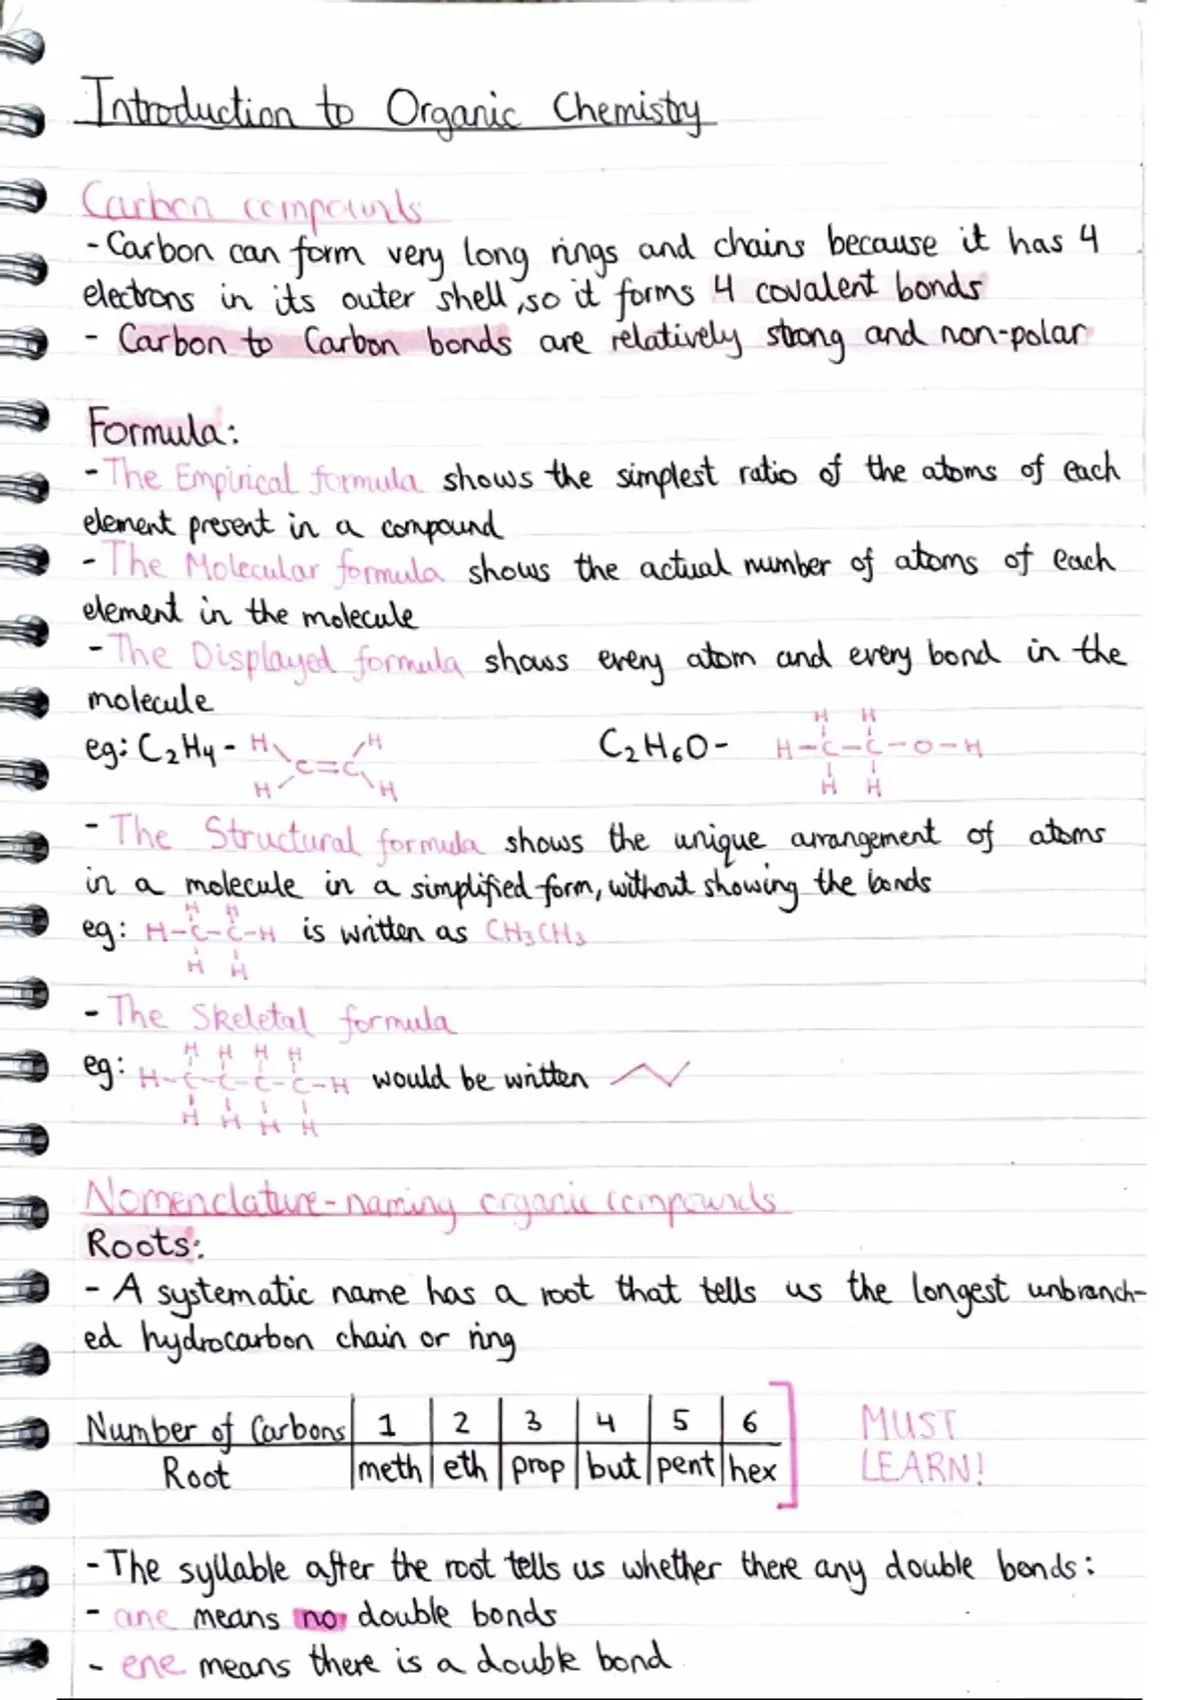 Introduction to Organic Chemistry
Carbon compounds
- Carbon can form very long rings and chains because it has 4
electrons in its outer shell, so it forms 4 covalent bonds
- Carbon to Carbon bonds are relatively strong and non-polar
Formula:
- The Empirical formula shows the simplest ratio of the atoms of each
element present in a compound
- The Molecular formula shows the actual number of atoms of each
element in the molecule
- The Displayed formula shows every atom and every bond in the
molecule
H H
eg: C₂H₄ - H H C₂H₆O - H-C-C-O-H
C=C
H H H H
- The Structural formula shows the unique arrangement of atoms
in a molecule in a simplified form, without showing the bonds
H H
eg: H-C-C-H is written as CH₃CH₃
H H
- The Skeletal formula
H H H H
eg: H-C-C-C-C-H would be written
H H H H
Nomenclature - naming organic compounds
Roots:
- A systematic name has a root that tells us the longest unbranch-
ed hydrocarbon chain or ring
Number of Carbons 1 2 3 4 5 6 MUST
Root meth eth prop but pent hex LEARN!
- The syllable after the root tells us whether there any double bonds:
- ane means no double bonds
- ene means there is a double bond